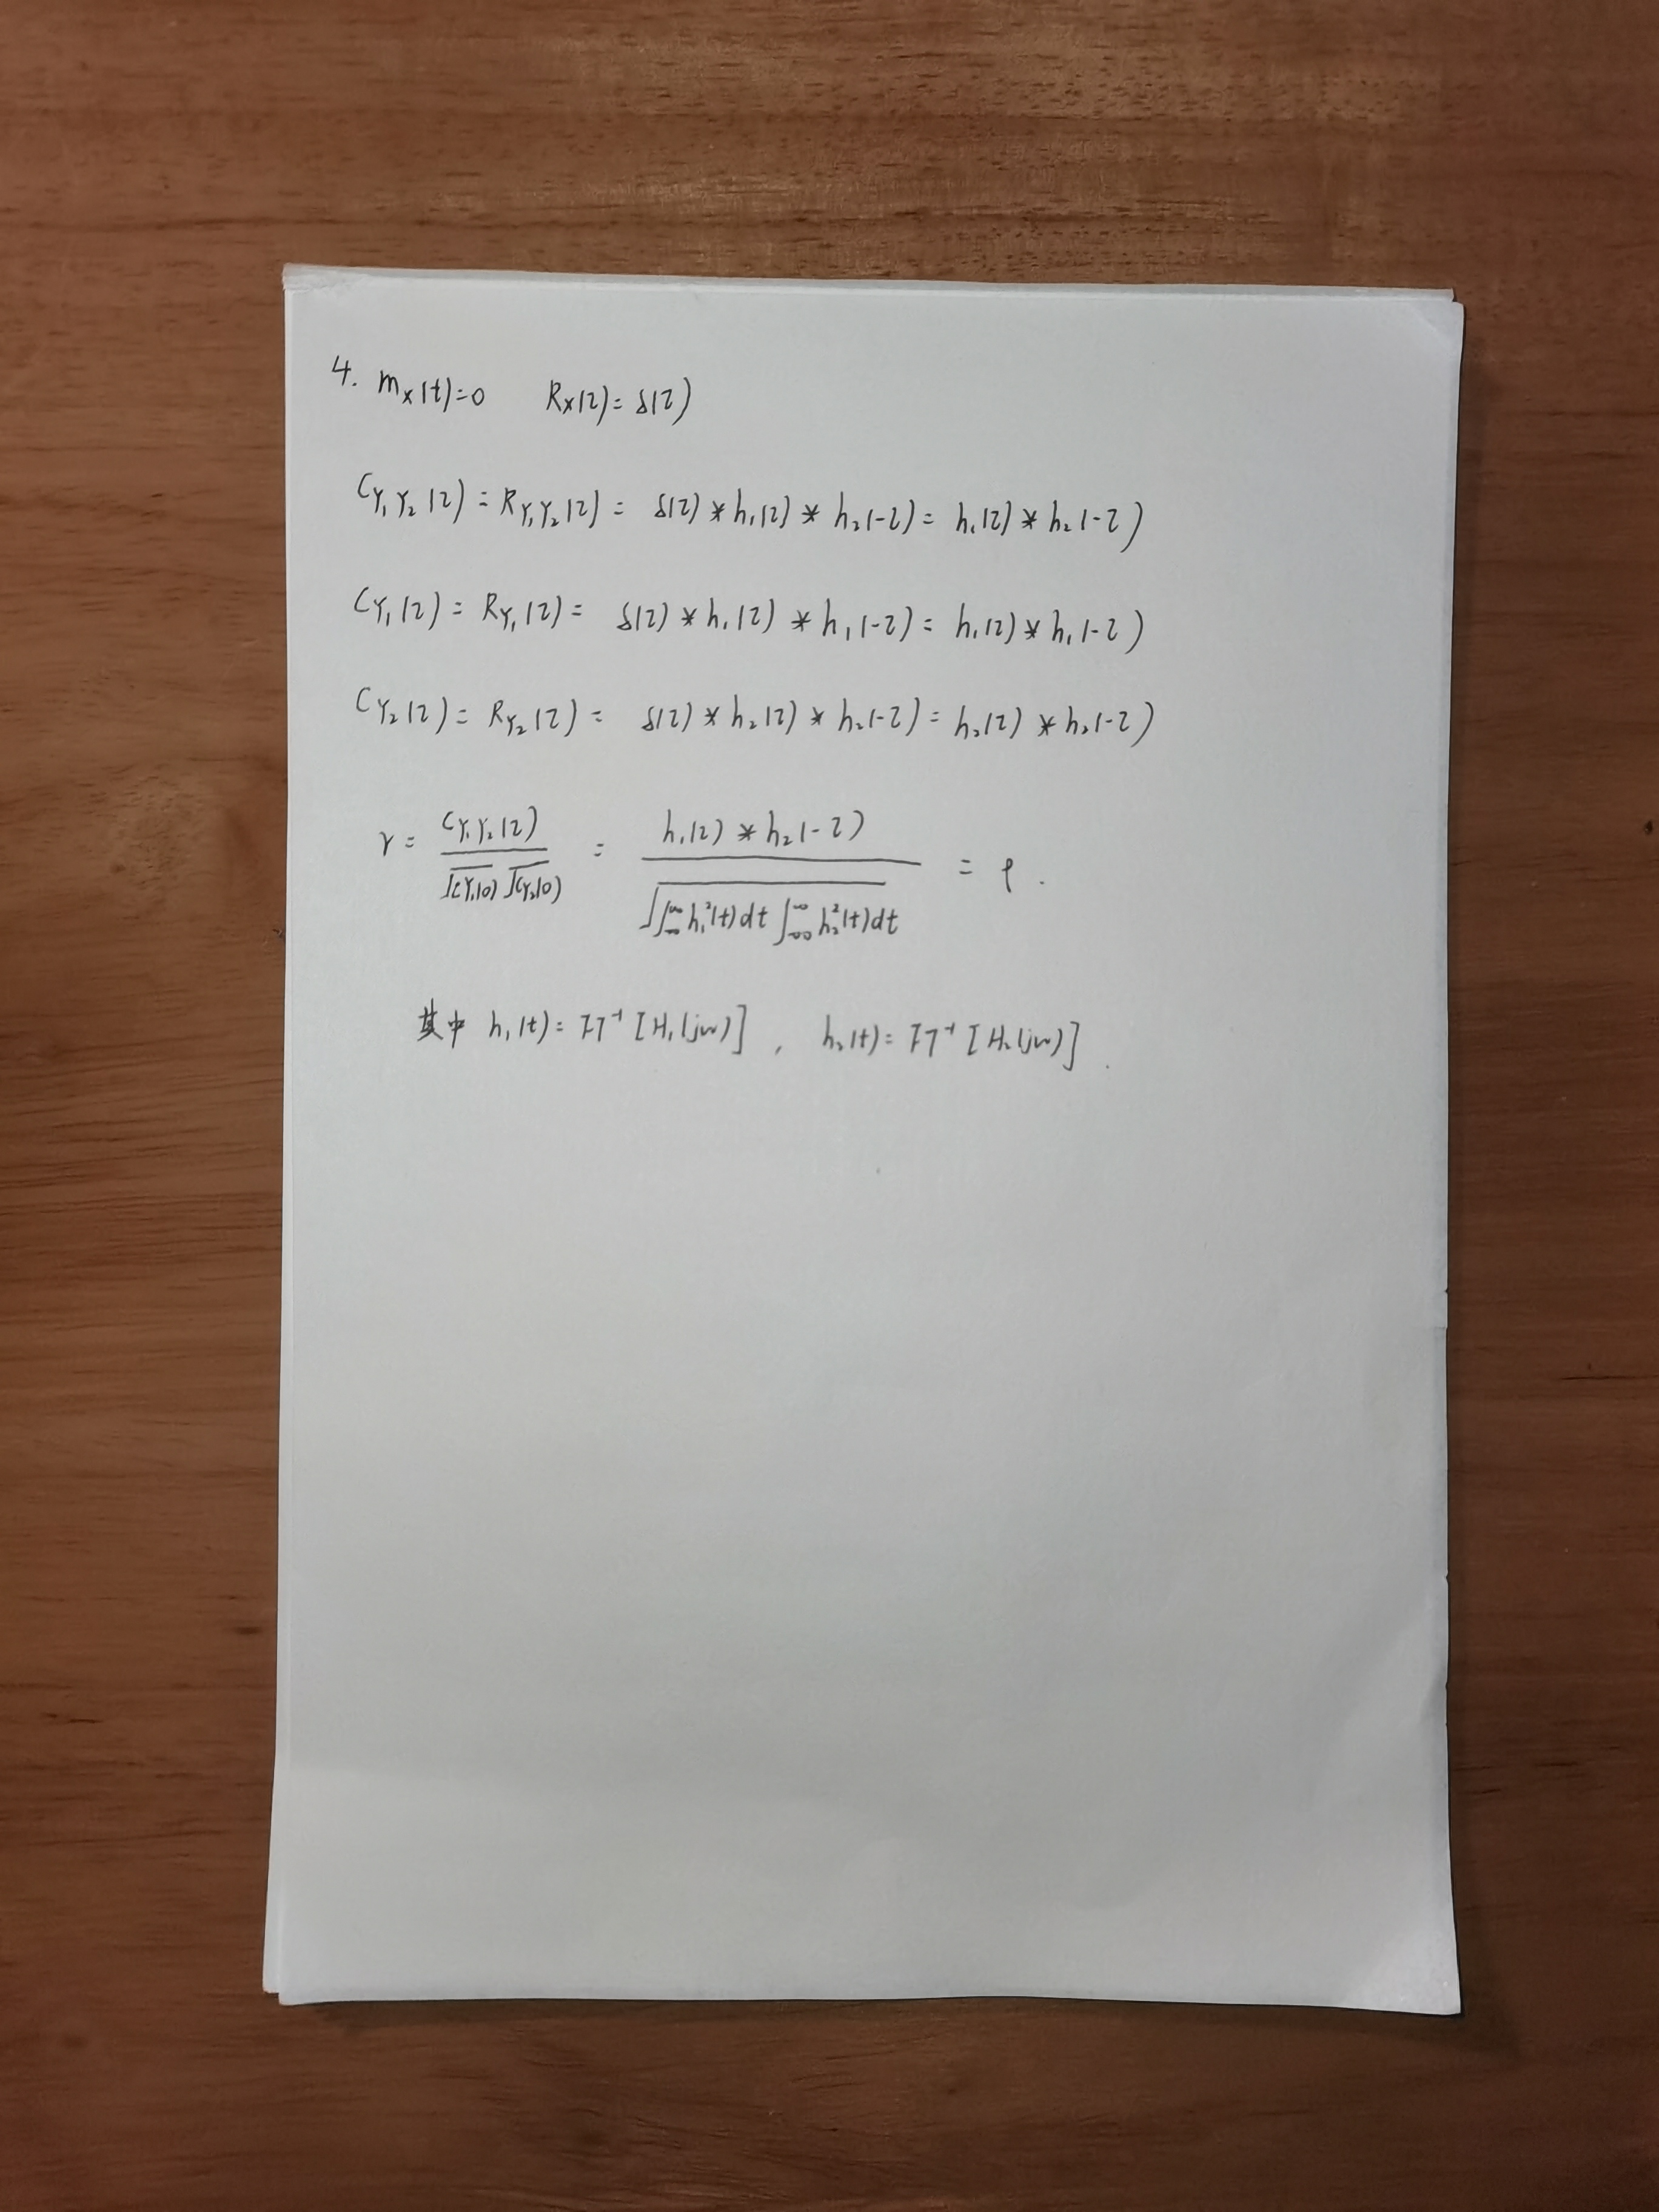 4. m_X(t)=0 R_X(τ)=δ(τ)
C_{Y₁Y₂}(τ)=R_{Y₁Y₂}(τ)= δ(τ)*h₁(τ)*h₂(-τ)= h₁(τ)*h₂(-τ)
C_{Y₁}(τ)=R_{Y₁}(τ)= δ(τ)*h₁(τ)*h₁(-τ)= h₁(τ)*h₁(-τ)
C_{Y₂}(τ)=R_{Y₂}(τ)= δ(τ)*h₂(τ)*h₂(-τ)= h₂(τ)*h₂(-τ)
r = \frac{C_{Y₁Y₂}(τ)}{\sqrt{C_{Y₁}(0)}\sqrt{C_{Y₂}(0)}} = \frac{h₁(τ)*h₂(-τ)}{\sqrt{∫_{-∞}^{∞}h₁²(t)dt∫_{-∞}^{∞}h₂²(t)dt}} = ρ.
其中 h₁(t)=FT⁻¹[H₁(jw)], h₂(t)=FT⁻¹[H₂(jw)].